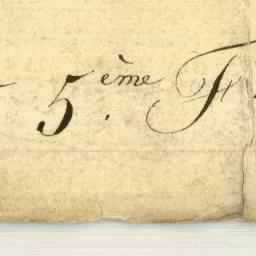 5.ème F